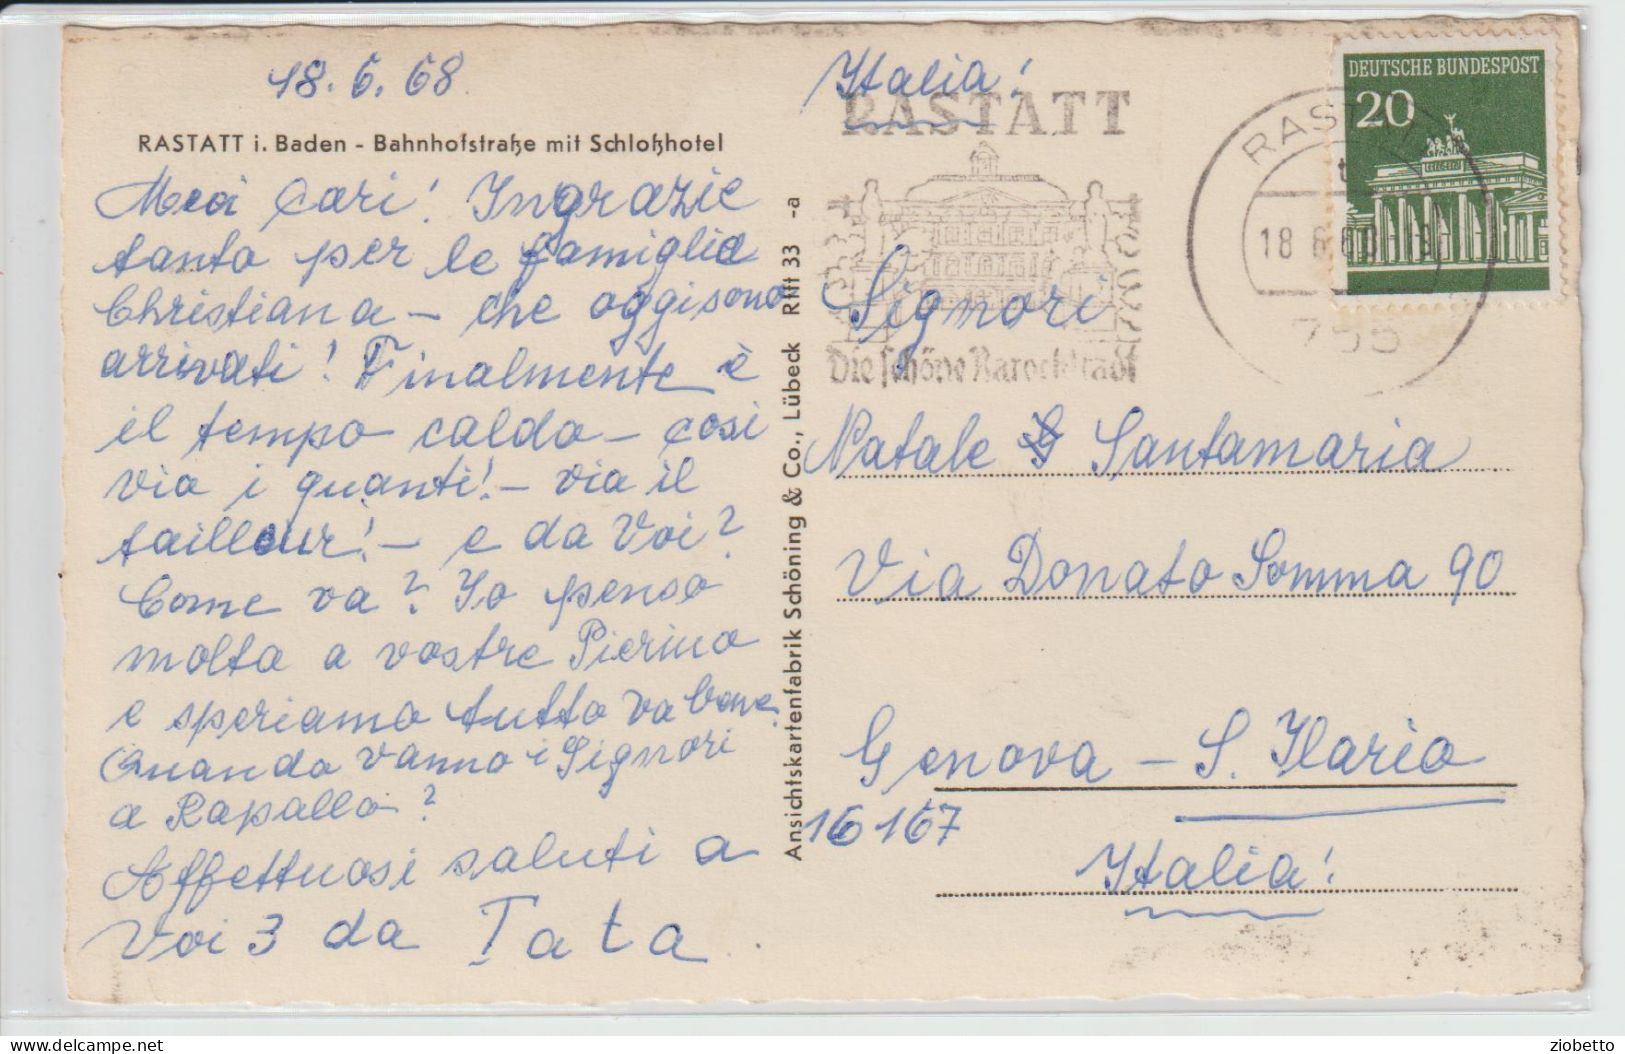 18.6.68
RASTATT i. Baden - Bahnhofstraße mit Schloßhotel
Miei Cari! Ingrazie
tanto per le famiglia
Christiana - che oggi sono
arrivati! Finalmente è
il tempo caldo - cosi
via i guanti! - via il
tailleur! - e da Voi?
Come va? Io penso
molto a vostre Pierino
e speriamo tutto va bene.
Quando vanno i Signori
a Rapallo?
Affettuosi saluti a
Voi 3 da Tata.
Ansichtskartenfabrik Schöning & Co., Lübeck Rftt 33 -a
Italia!
RASTATT
Die schöne Barockstadt
RASTATT
18 6 68
755
DEUTSCHE BUNDESPOST
20
Signori
Natale Santamaria
Via Donato Somma 90
Genova - S. Ilario
16167
Italia!
delcampe.net
ziobetto